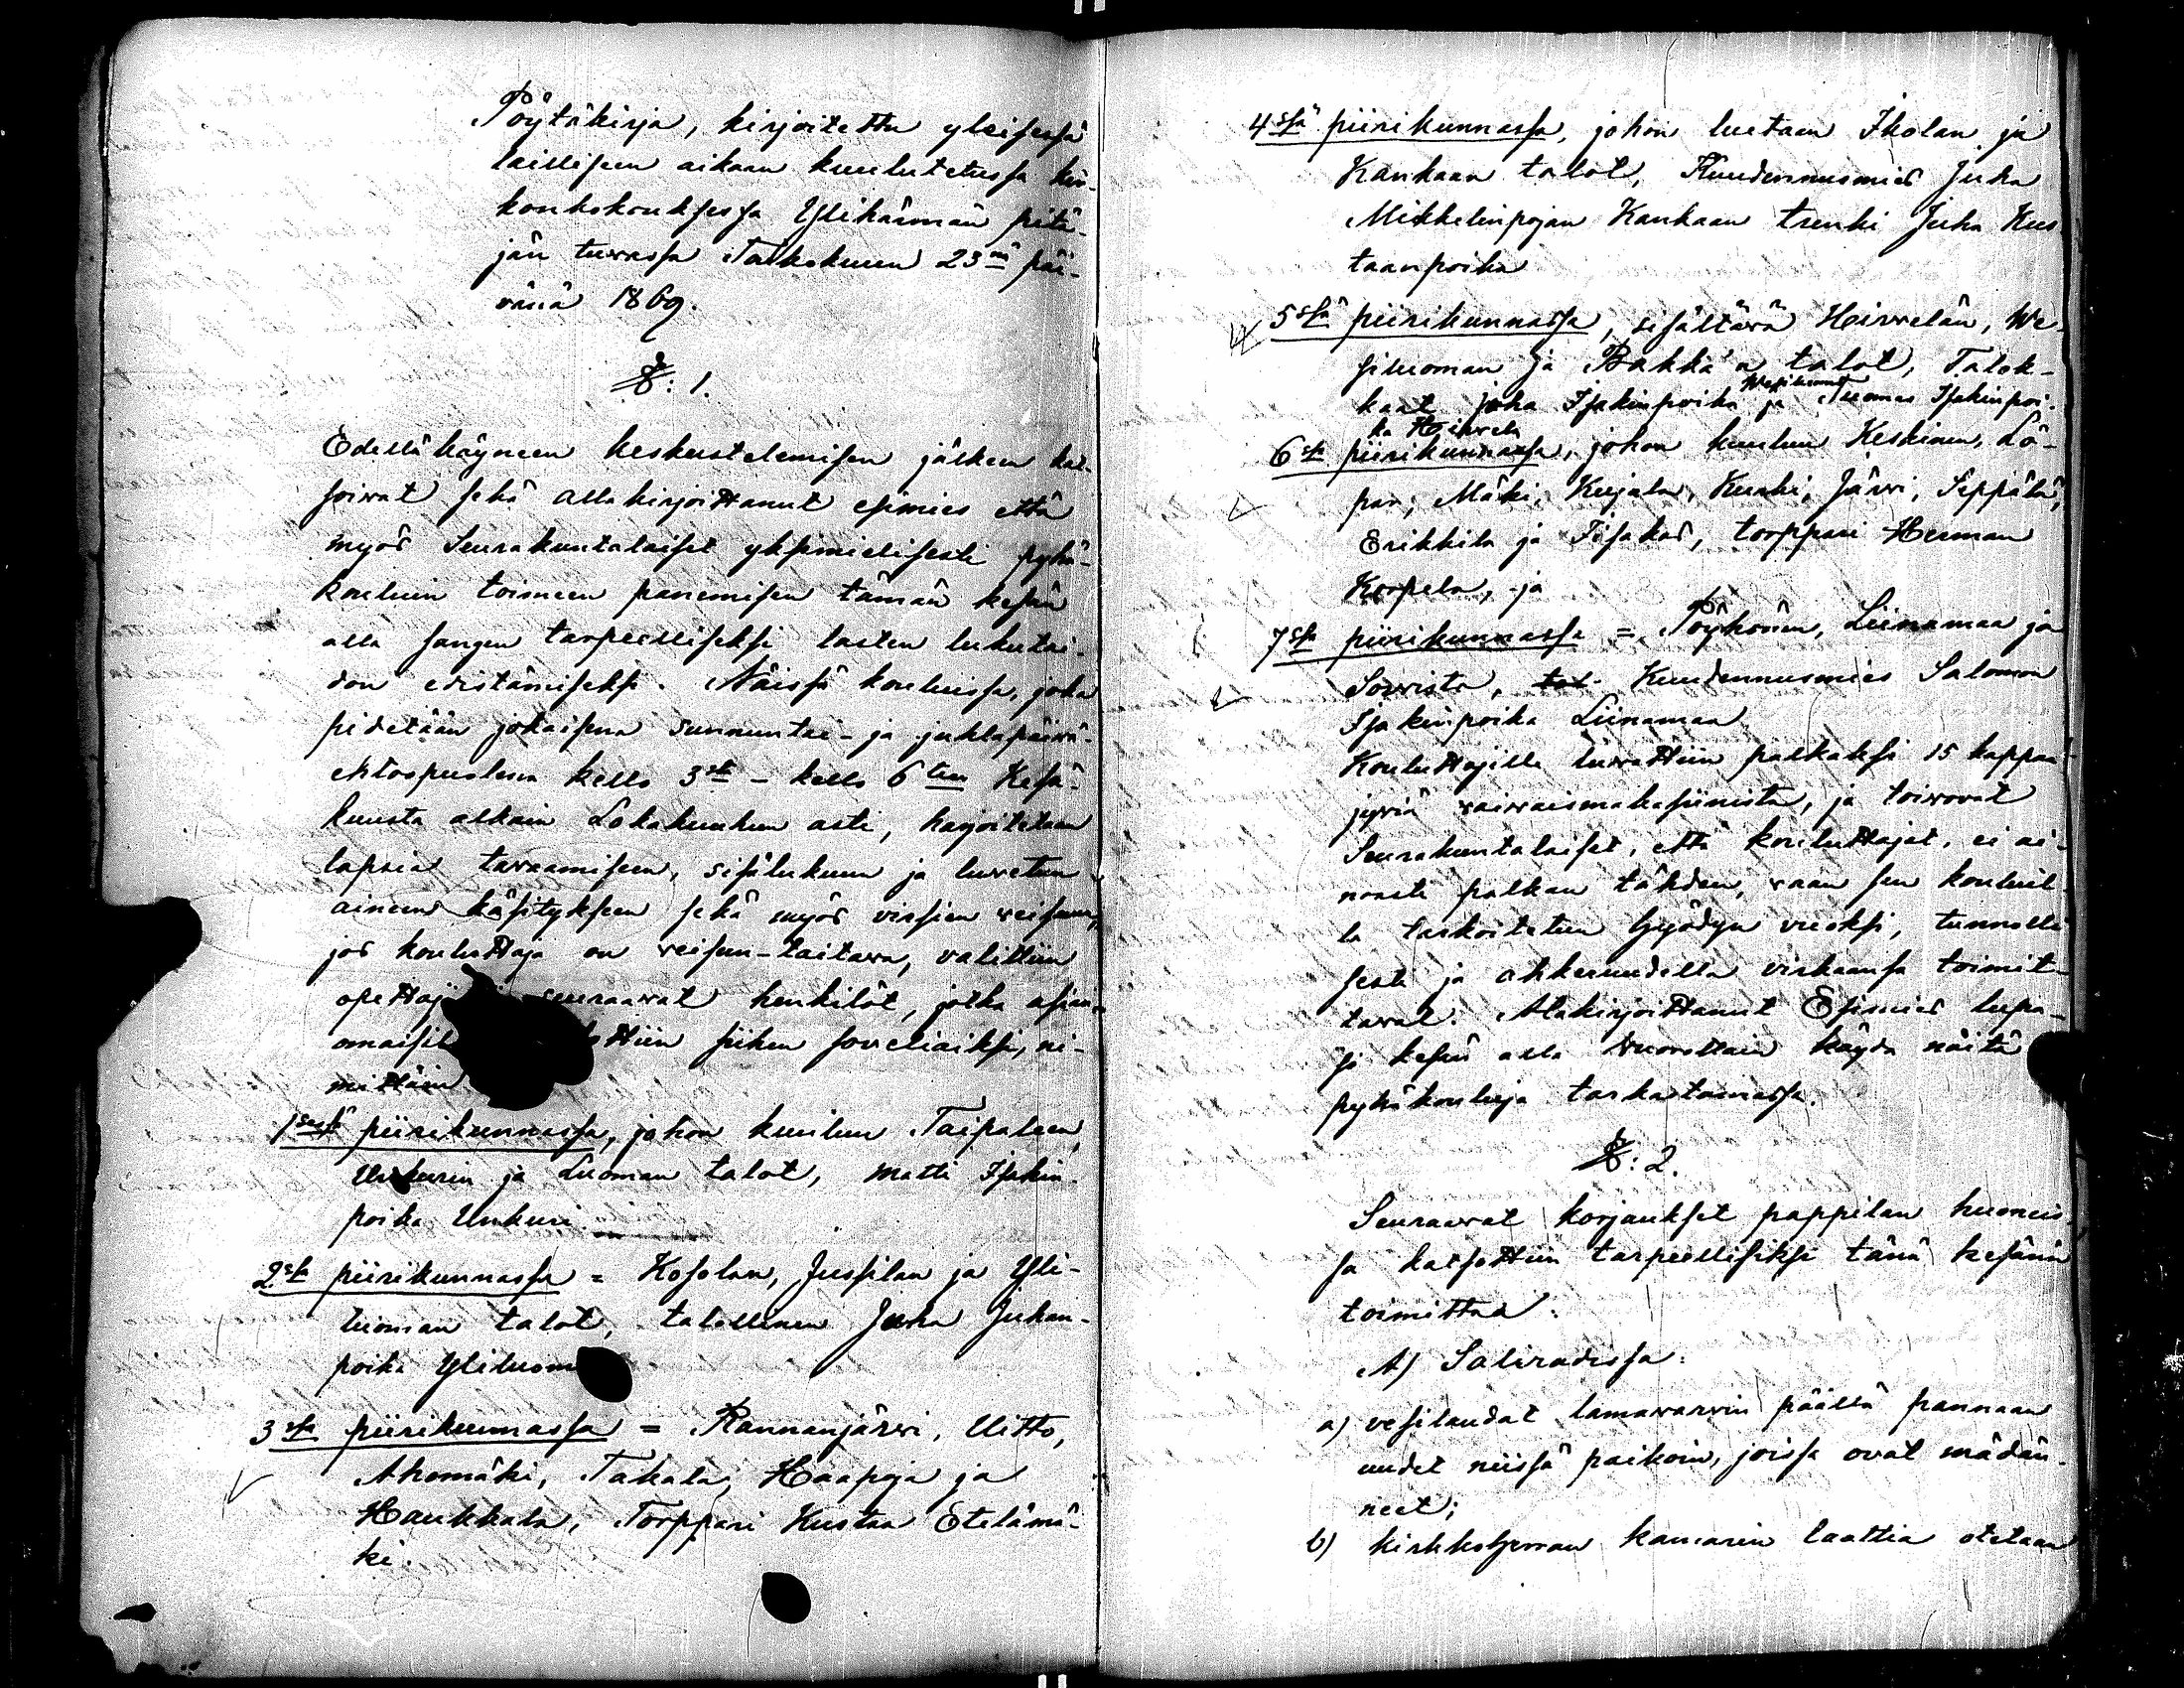 Pöytäkirja, kirjoitettu yleisessä
lailliseen aikaan kuulutetussa kir-
konkokouksessa Ylihärmän pitä-
jän tuvassa Toukokuun 23na päi-
vänä 1869.
§: 1.
Edelläkäyneen keskustelemisen jälkeen kat-
soivat sekä allakirjoittanut esimies että
myös Seurakuntalaiset yksimielisesti pyhä-
koulun toimeen panemisen tämän kesän
alla sangen tarpeelliseksi lasten lukutai-
don edistämiseksi. Näissä kouluissa, joka
pidetään jokaisna sunnuntai- ja juhlapäivä-
ehtoopuolena kello 3sta - kello 6teen Kesä-
kuusta alkain Lokakuuhun asti, harjoitetaan
lapsia tavaamiseen, sisälukuun ja luvetun
aineen käsitykseen sekä myös virsien veisuun,
jos kouluttaja on veisuu-taitava, valittiin
seuraavat henkilöt, jotka asian-
siihen soveliaiksi, ni-
mittäin
1sessä piirikunnassa, johon kuuluu Taipaleen,
Unkurin ja Luoman talot, Matti Isakin-
poika Unkuri.
2sa piirikunnassa = Kosolan, Jussilan ja Yli-
luoman talot, talollinen Juha Juhan-
poika Yliluoma
3ssa piirikunnassa = Rannanjärvi, Uitto,
Ahomäki, Takala, Haapoja ja
Haukkala, Torppari Kustaa Etelämä-
ki.
4ssä piirikunnassa, johon luetaan Ikolan ja
Kankaan talot, Kuudennusmies Juha
Mikkelinpojan Kankaan trenki Juha Kus
taanpoika
5ssä piirikunnassa, sisältävä Heirvelän, We-
siluoman ja Pakka'n talot, Talok-
kaat Juha Isakinpoika Wesiluoma ja Tuomas Isakinpoi-
ka Heirvela
6ssa piirikunnassa, johon kuuluu Keskinen, Lö-
par, Mäki, Kujala, Kuuhi, Järvi, Seppälä,
Erikkila ja Fisakas, torppari Herman
Korpela, ja
7ssa piirikunnassa = Pöyhönen, Liinamaa ja
Sorvisto, tal. Kuudennusmies Salomon
Isakinpoika Liinamaa.
Kouluttajille luvattiin palkaksi 15 kappaa
jyviä vaivaismakasiinista, ja toivovat
Seurakuntalaiset, että kouluttajat, ei ai-
noasti palkan tähden, vaan sen koulul
la tarkoitetun hyödyn vuoksi, tunnolli
sesti ja ahkeruudella virkaansa toimit-
tavat. Alakirjoittanut Esimies lupa-
si kesän alla vuorottain käydä näitä
pyhäkouluja tarkastamassa.
§: 2.
Seuraavat korjaukset pappilan huoneis-
sa katsottiin tarpeellisiksi tänä kesänä
toimittaa:
A) Saliradissa:
a) vesilaudat lamavarvin päällä pannaan
uudet niissä paikoin, joissa ovat mädän-
neet;
b) kirkkoherran kamarin laattia otetaan